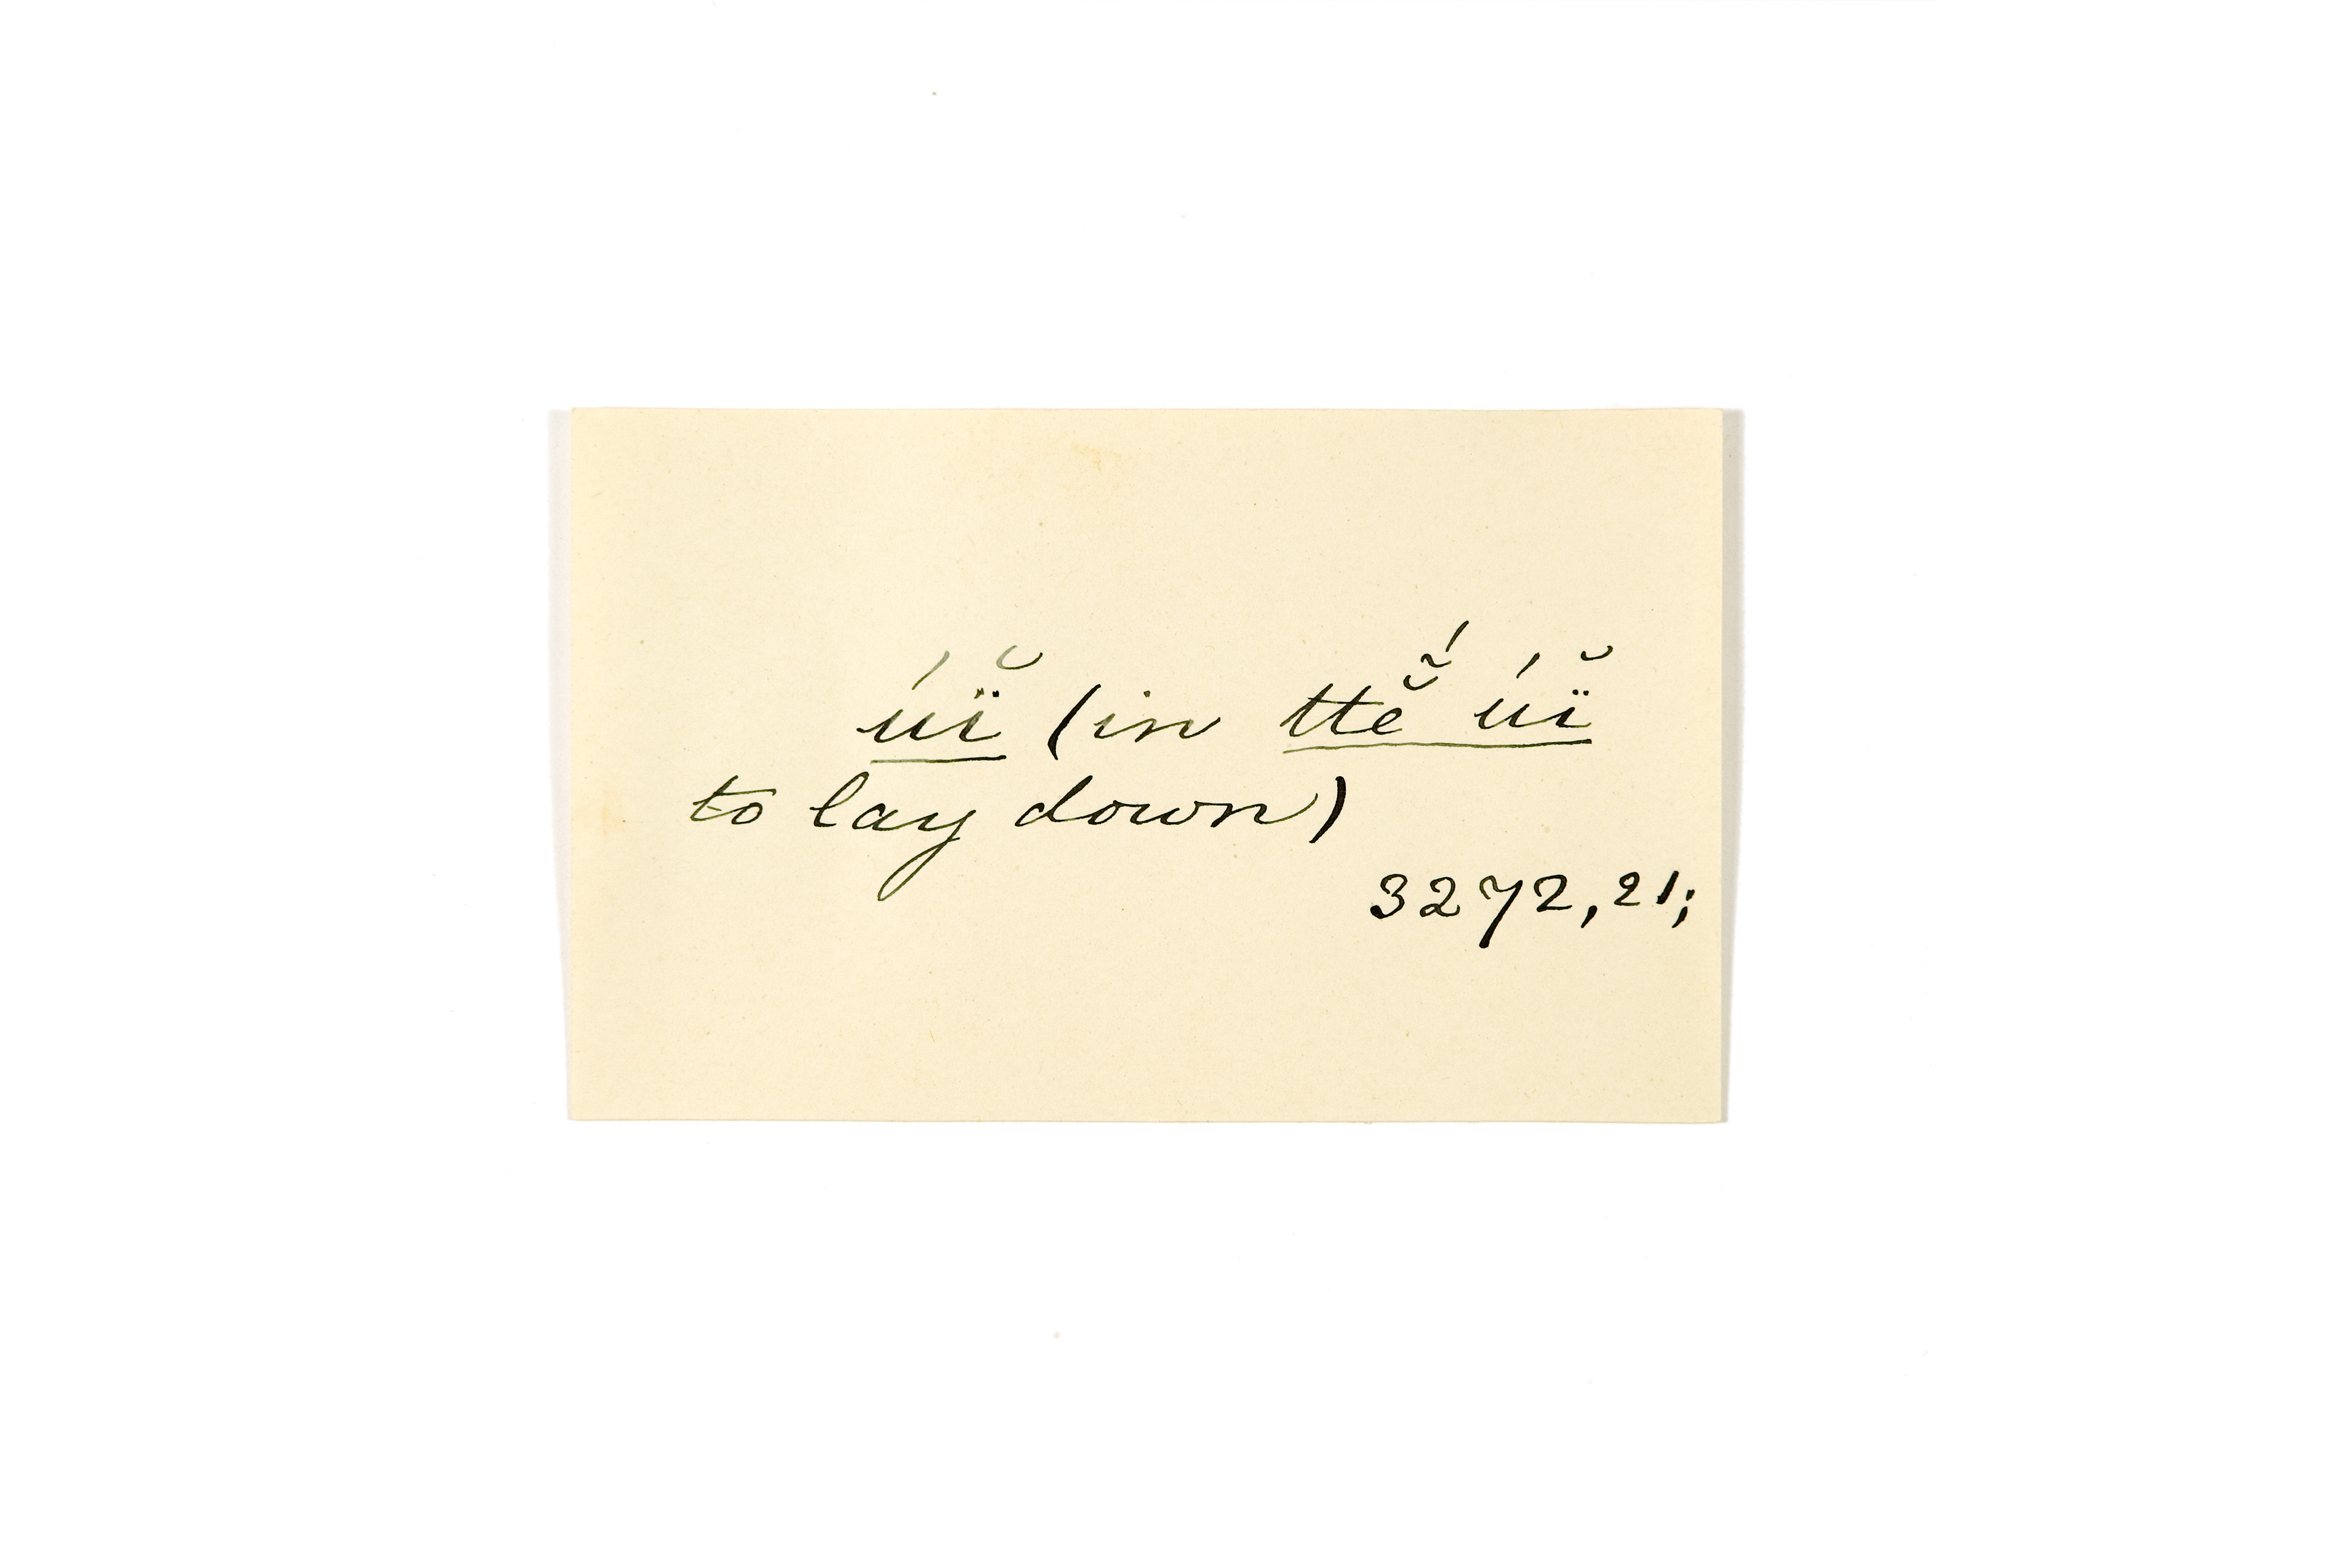 úï̆ (in ttĕ̃́ úï̆
to lay down)
3272, 21;